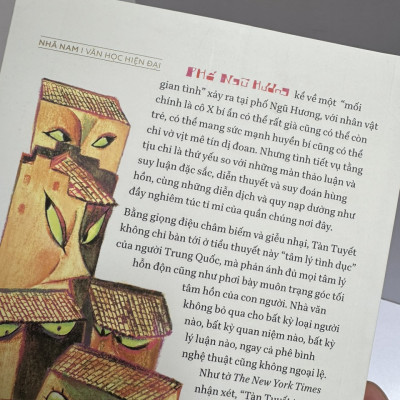 NHÃ NAM | VĂN HỌC HIỆN ĐẠI
PHố Ngũ Hương kể về một “mối
gian tình” xảy ra tại phố Ngũ Hương, với nhân vật
chính là cô X bí ẩn có thể rất già cũng có thể còn
trẻ, có thể mang sức mạnh huyền bí cũng có thể
chỉ vờ vịt mê tín dị đoan. Nhưng tình tiết vụ tằng
tịu chỉ là thứ yếu so với những màn thảo luận và
suy luận đặc sắc, diễn thuyết và suy đoán hùng
hồn, cùng những diễn dịch và quy nạp dường như
đầy nghiêm túc tỉ mỉ của quần chúng nơi đây.
Bằng giọng điệu châm biếm và giễu nhại, Tàn Tuyết
không chỉ bàn tới ở tiểu thuyết này “tâm lý tình dục”
của người Trung Quốc, mà phản ánh đủ mọi tâm lý
hỗn độn cũng như phơi bày muôn trạng góc tối
tâm hồn của con người. Nhà văn
không bỏ qua cho bất kỳ loại người
nào, bất kỳ quan niệm nào, bất kỳ
lý luận nào, ngay cả phê bình
nghệ thuật cũng không ngoại lệ.
Như tờ The New York Times
nhận xét, “Tàn Tuyết